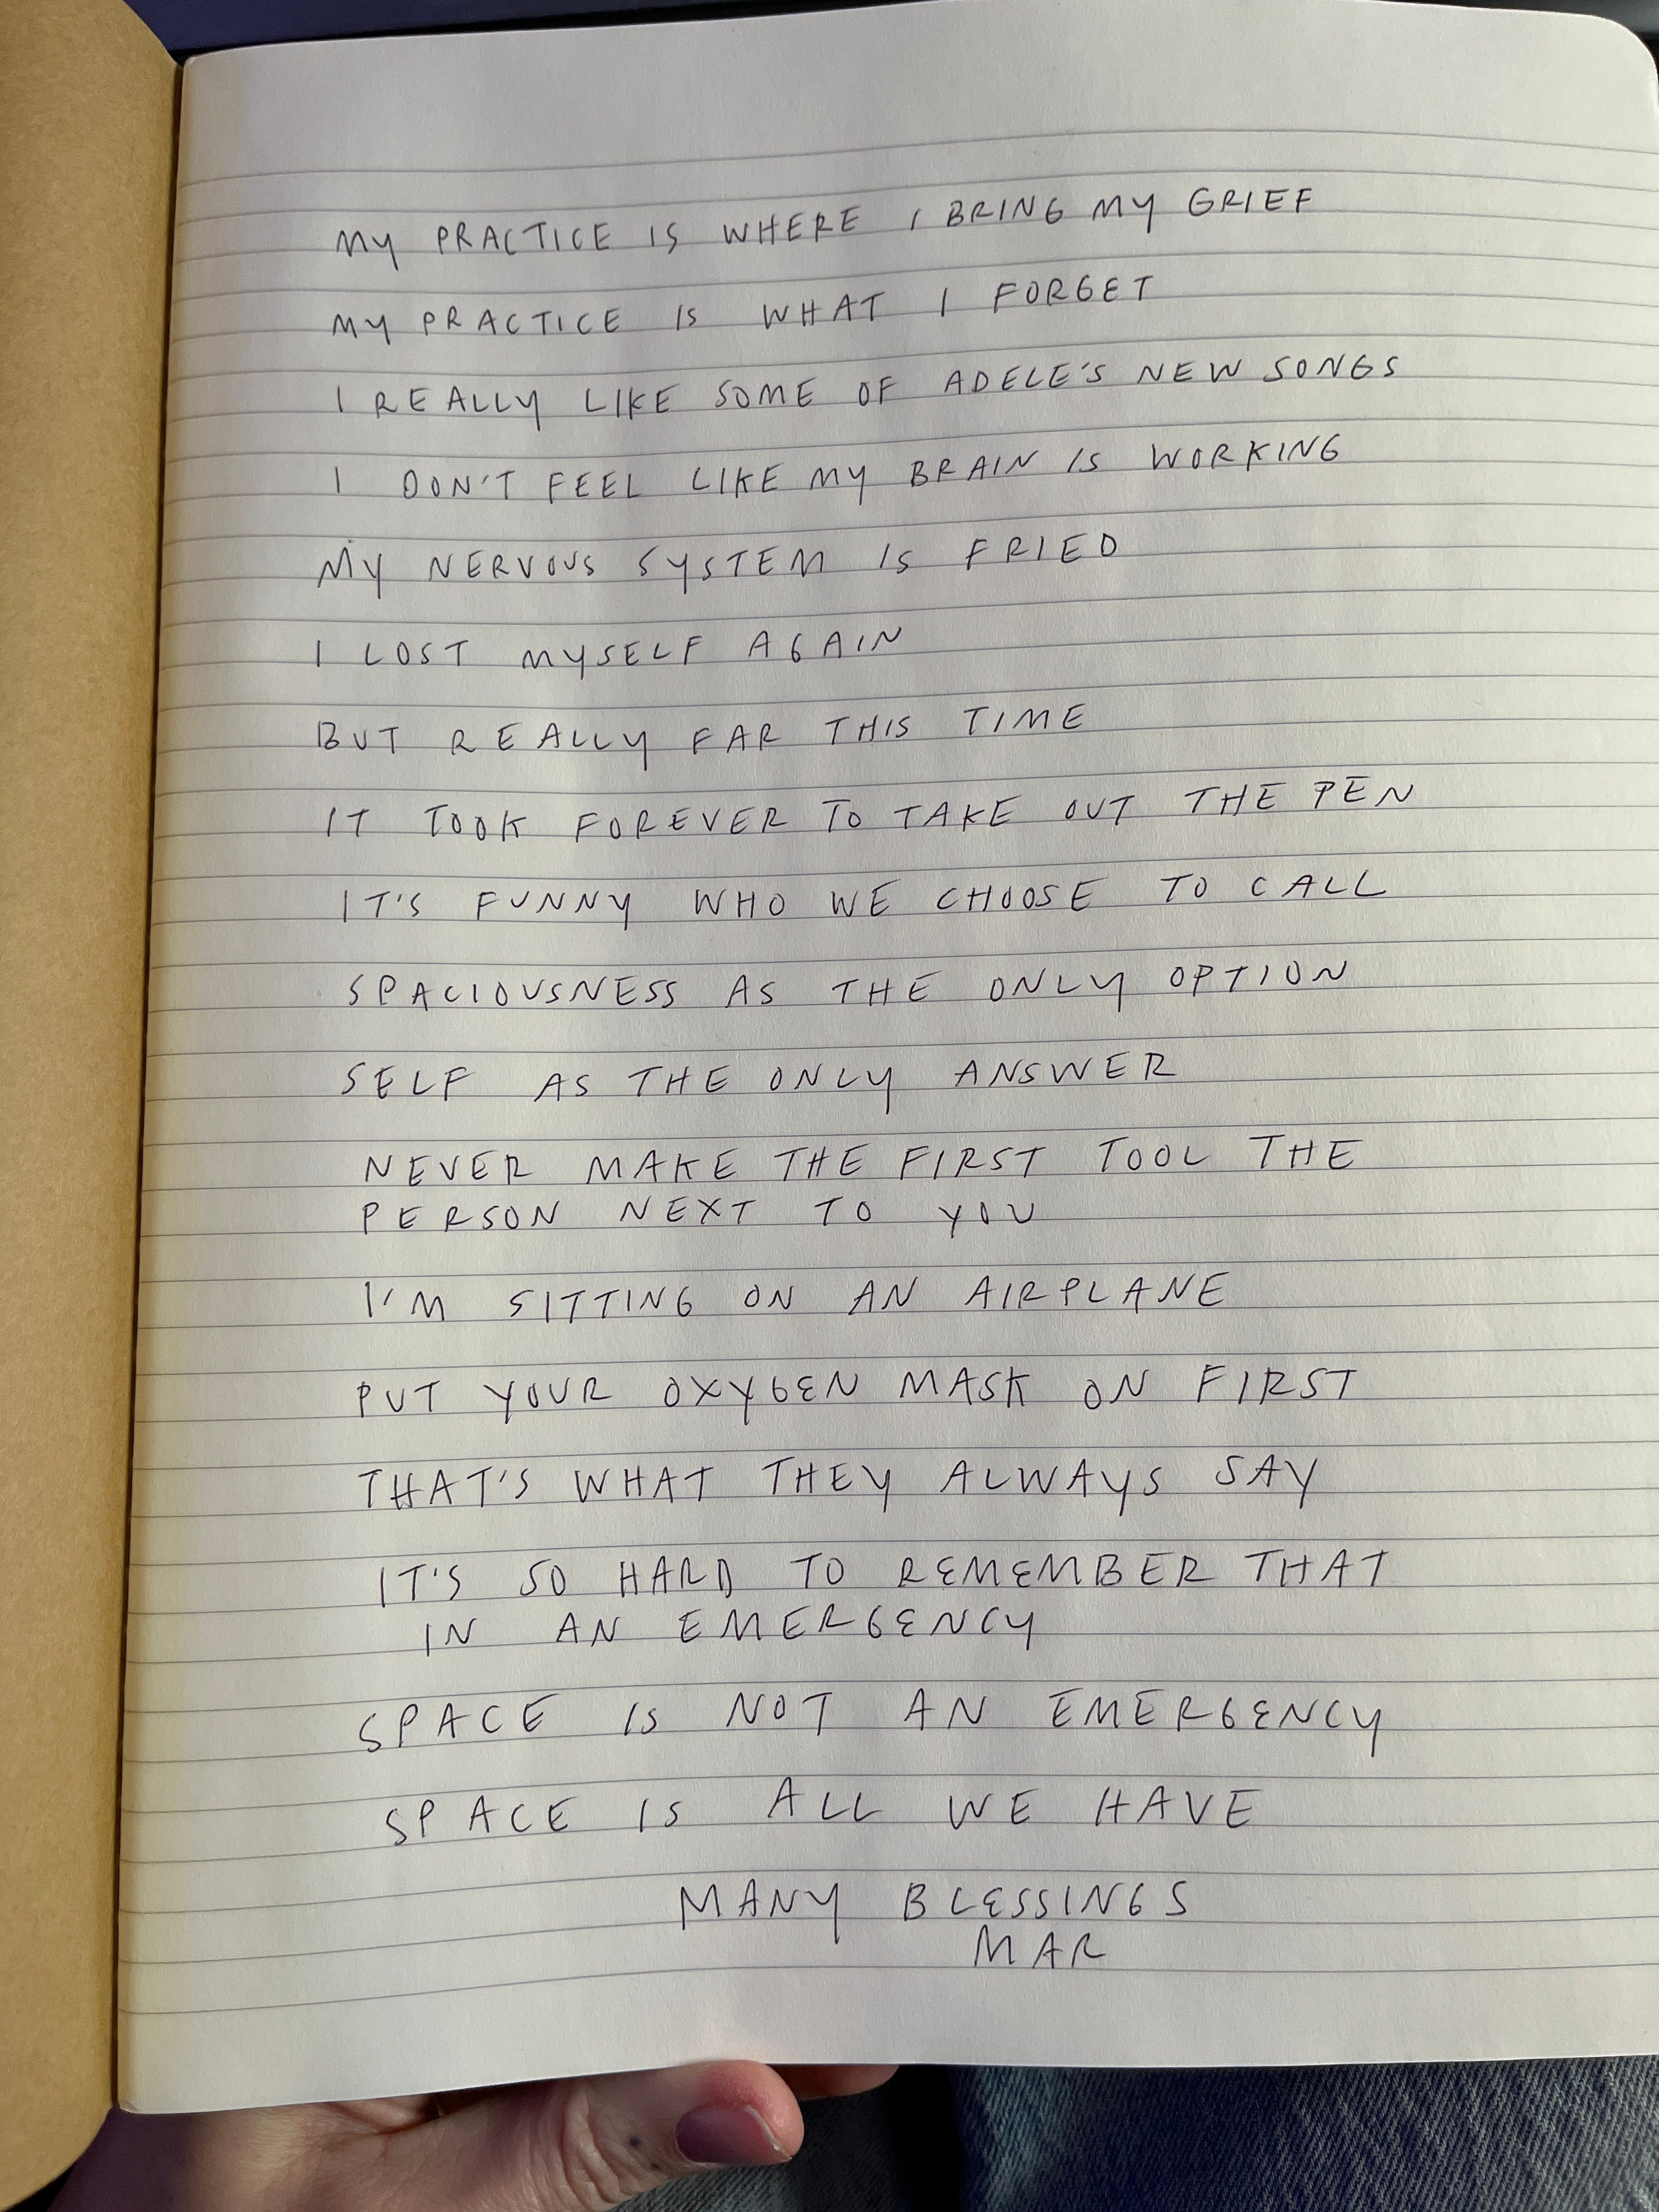 MY PRACTICE IS WHERE I BRING MY GRIEF
MY PRACTICE IS WHAT I FORGET
I REALLY LIKE SOME OF ADELE'S NEW SONGS
I DON'T FEEL LIKE MY BRAIN IS WORKING
MY NERVOUS SYSTEM IS FRIED
I LOST MYSELF AGAIN
BUT REALLY FAR THIS TIME
IT TOOK FOREVER TO TAKE OUT THE PEN
IT'S FUNNY WHO WE CHOOSE TO CALL
SPACIOUSNESS AS THE ONLY OPTION
SELF AS THE ONLY ANSWER
NEVER MAKE THE FIRST TOOL THE
PERSON NEXT TO YOU
I'M SITTING ON AN AIRPLANE
PUT YOUR OXYGEN MASK ON FIRST
THAT'S WHAT THEY ALWAYS SAY
IT'S SO HARD TO REMEMBER THAT
IN AN EMERGENCY
SPACE IS NOT AN EMERGENCY
SPACE IS ALL WE HAVE
MANY BLESSINGS
MAR